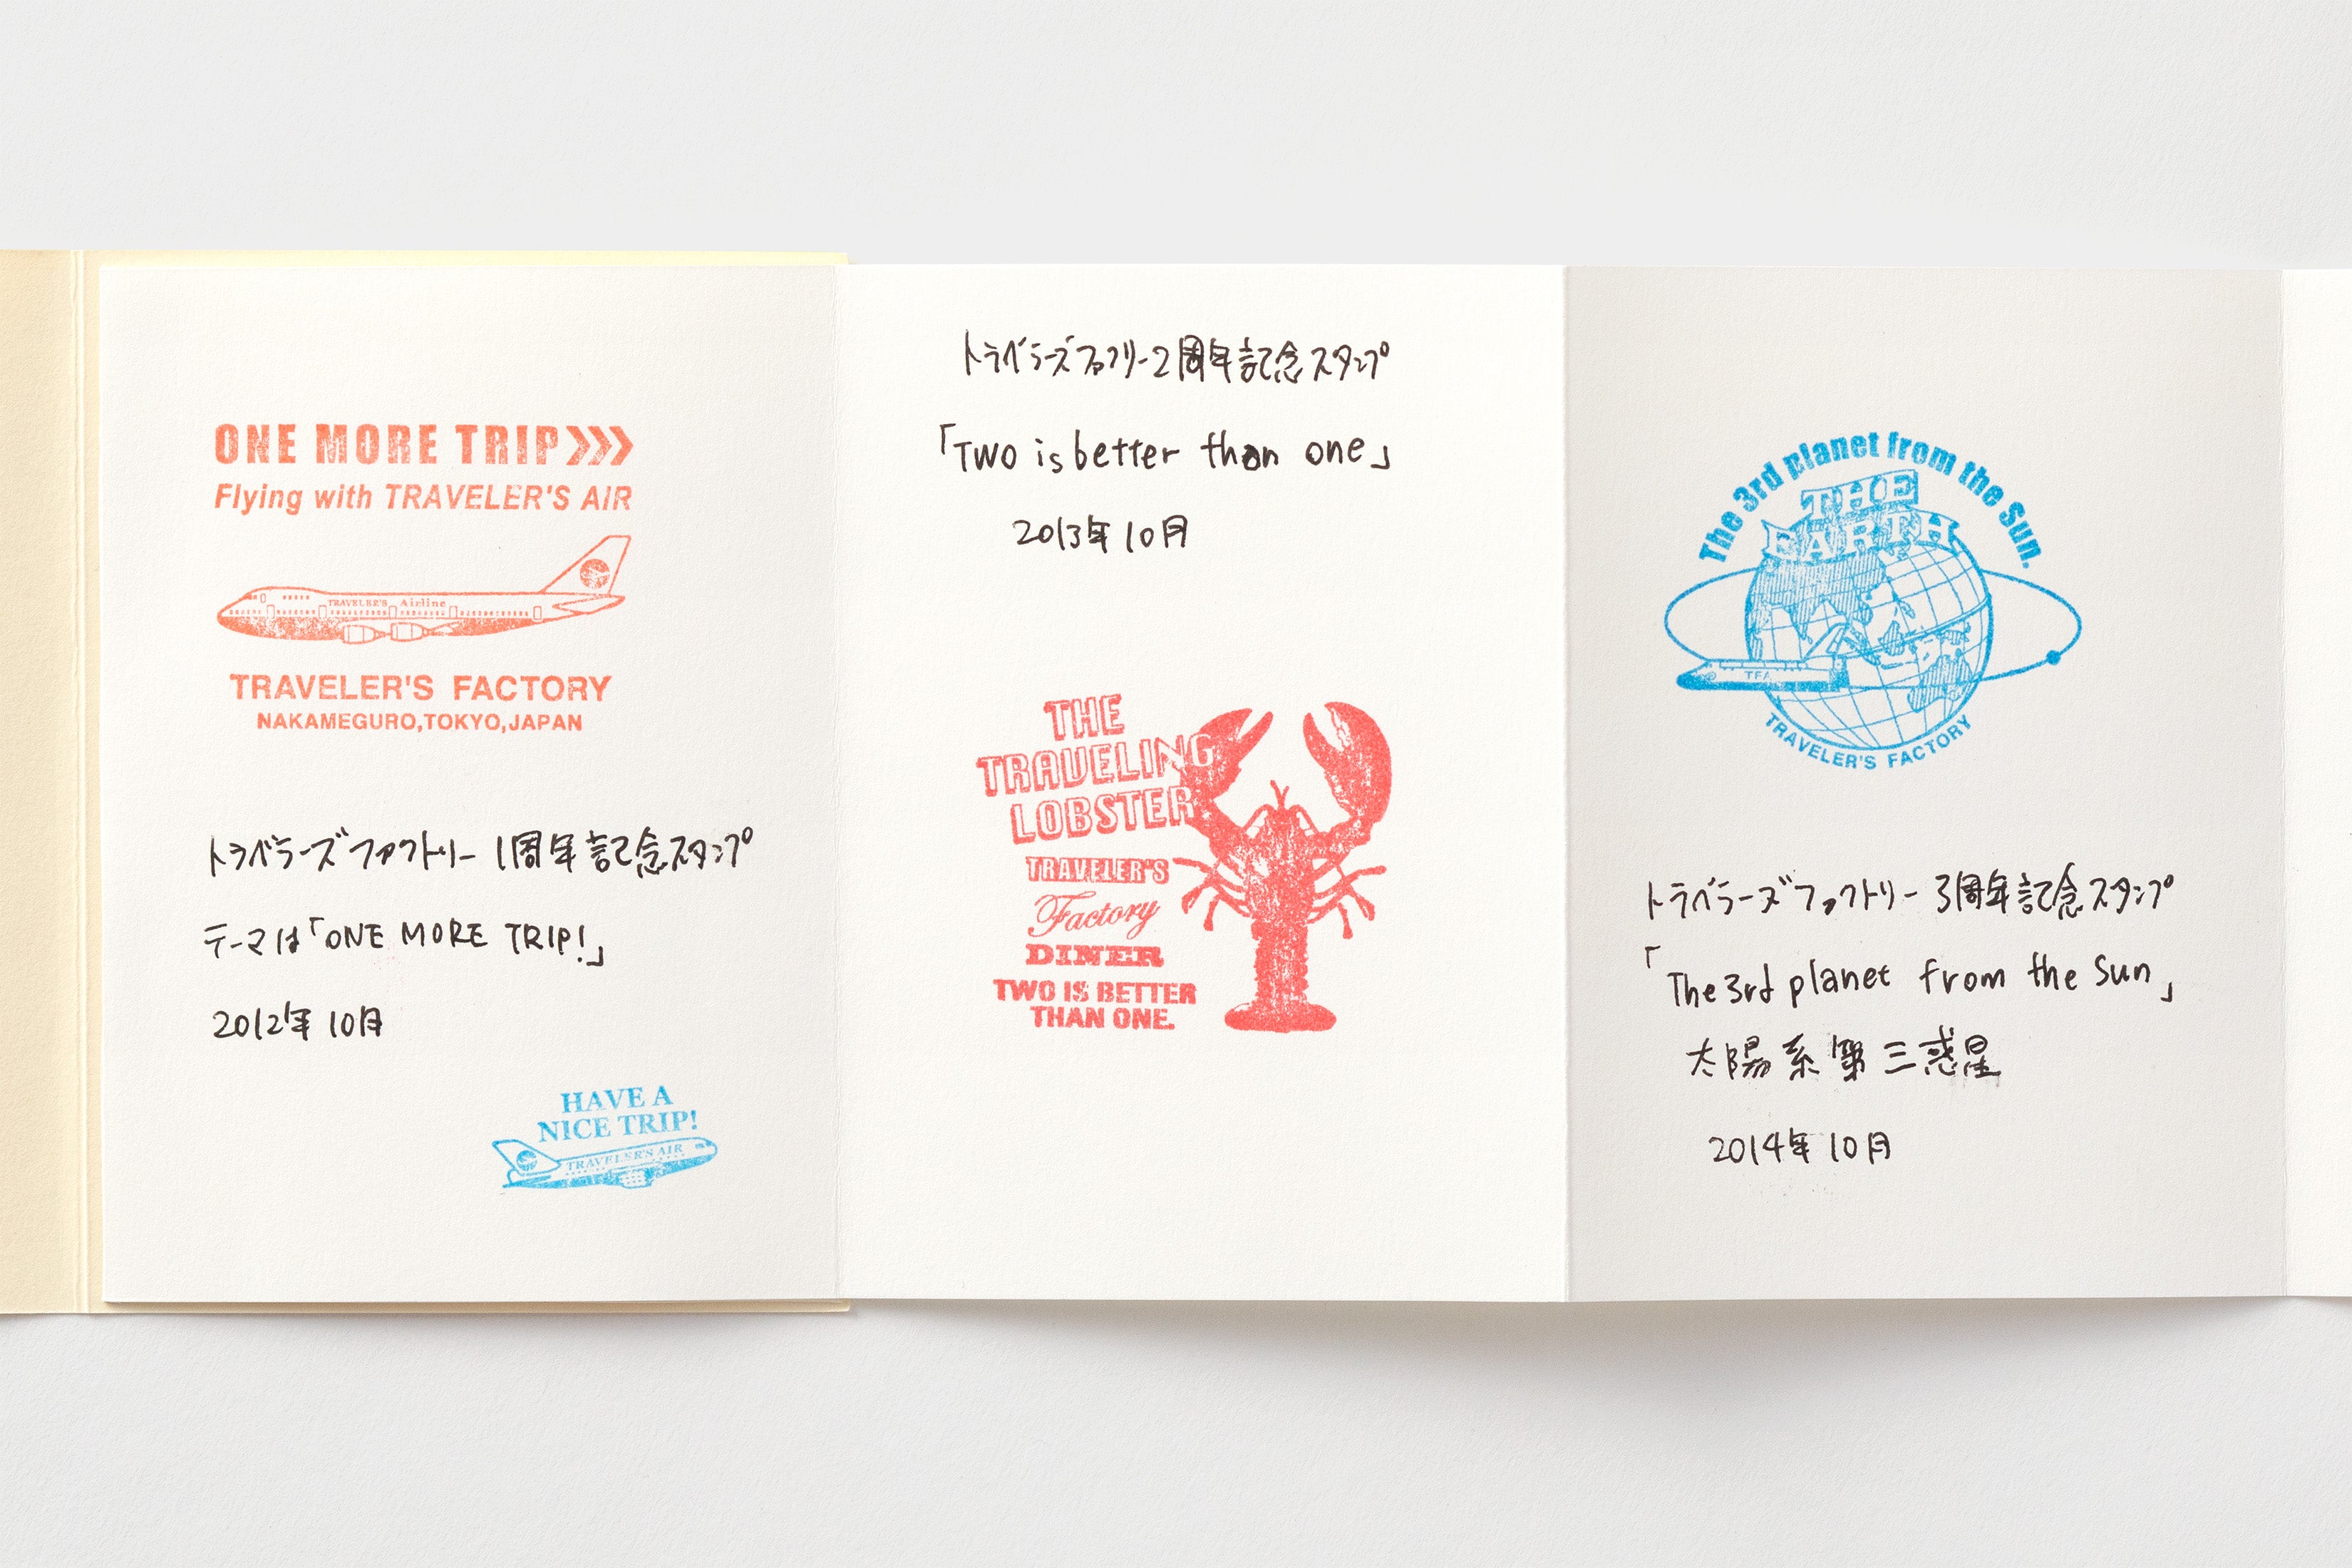 ONE MORE TRIP
Flying with TRAVELER'S AIR
TRAVELER'S Airline
TRAVELER'S FACTORY
NAKAMEGURO,TOKYO,JAPAN
トラベラーズファクトリー 1周年記念スタンプ
テーマは「ONE MORE TRIP!」
2012年10月
HAVE A
NICE TRIP!
TRAVELER'S AIR
トラベラーズファクトリー2周年記念スタンプ
「Two is better than one」
2013年10月
THE
TRAVELING
LOBSTER
TRAVELER'S
Factory
DINER
TWO IS BETTER
THAN ONE.
The 3rd planet from the Sun.
THE
EARTH
TFA
TRAVELER'S FACTORY
トラベラーズファクトリー 3周年記念スタンプ
「The 3rd planet from the Sun」
太陽系第三惑星
2014年10月